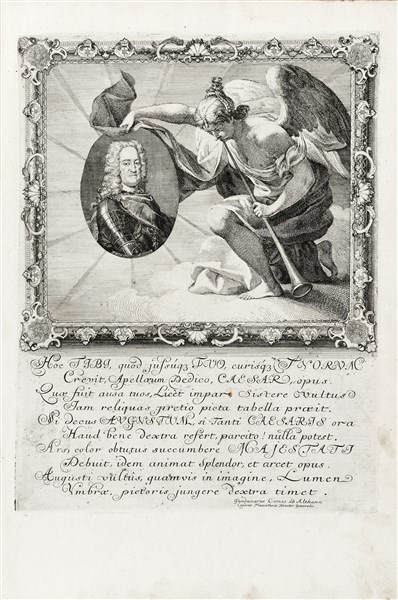 Hoc TIBI, quod jussúqz TUO, curisqz TUORUM
Crevit, Apellæum Dedico, CAESAR, opus.
Quæ fúit ausa tuos, Licèt impar, Sistere vultus
Jam reliquas pretio picta tabella præit.
Si decus AUGUSTUM, si Tanti CAESARIS ora
Haud bene dextra refert, parcito! nulla potest.
Ars, color obtutus succumbere MAJESTATI
Debuit, idem animat Splendor, et arcet opus.
Augusti vultús, quamvis in imagine, Lumen
Umbræ, pictoris jungere dextra timet.
Gundacarus Comes ab Althann